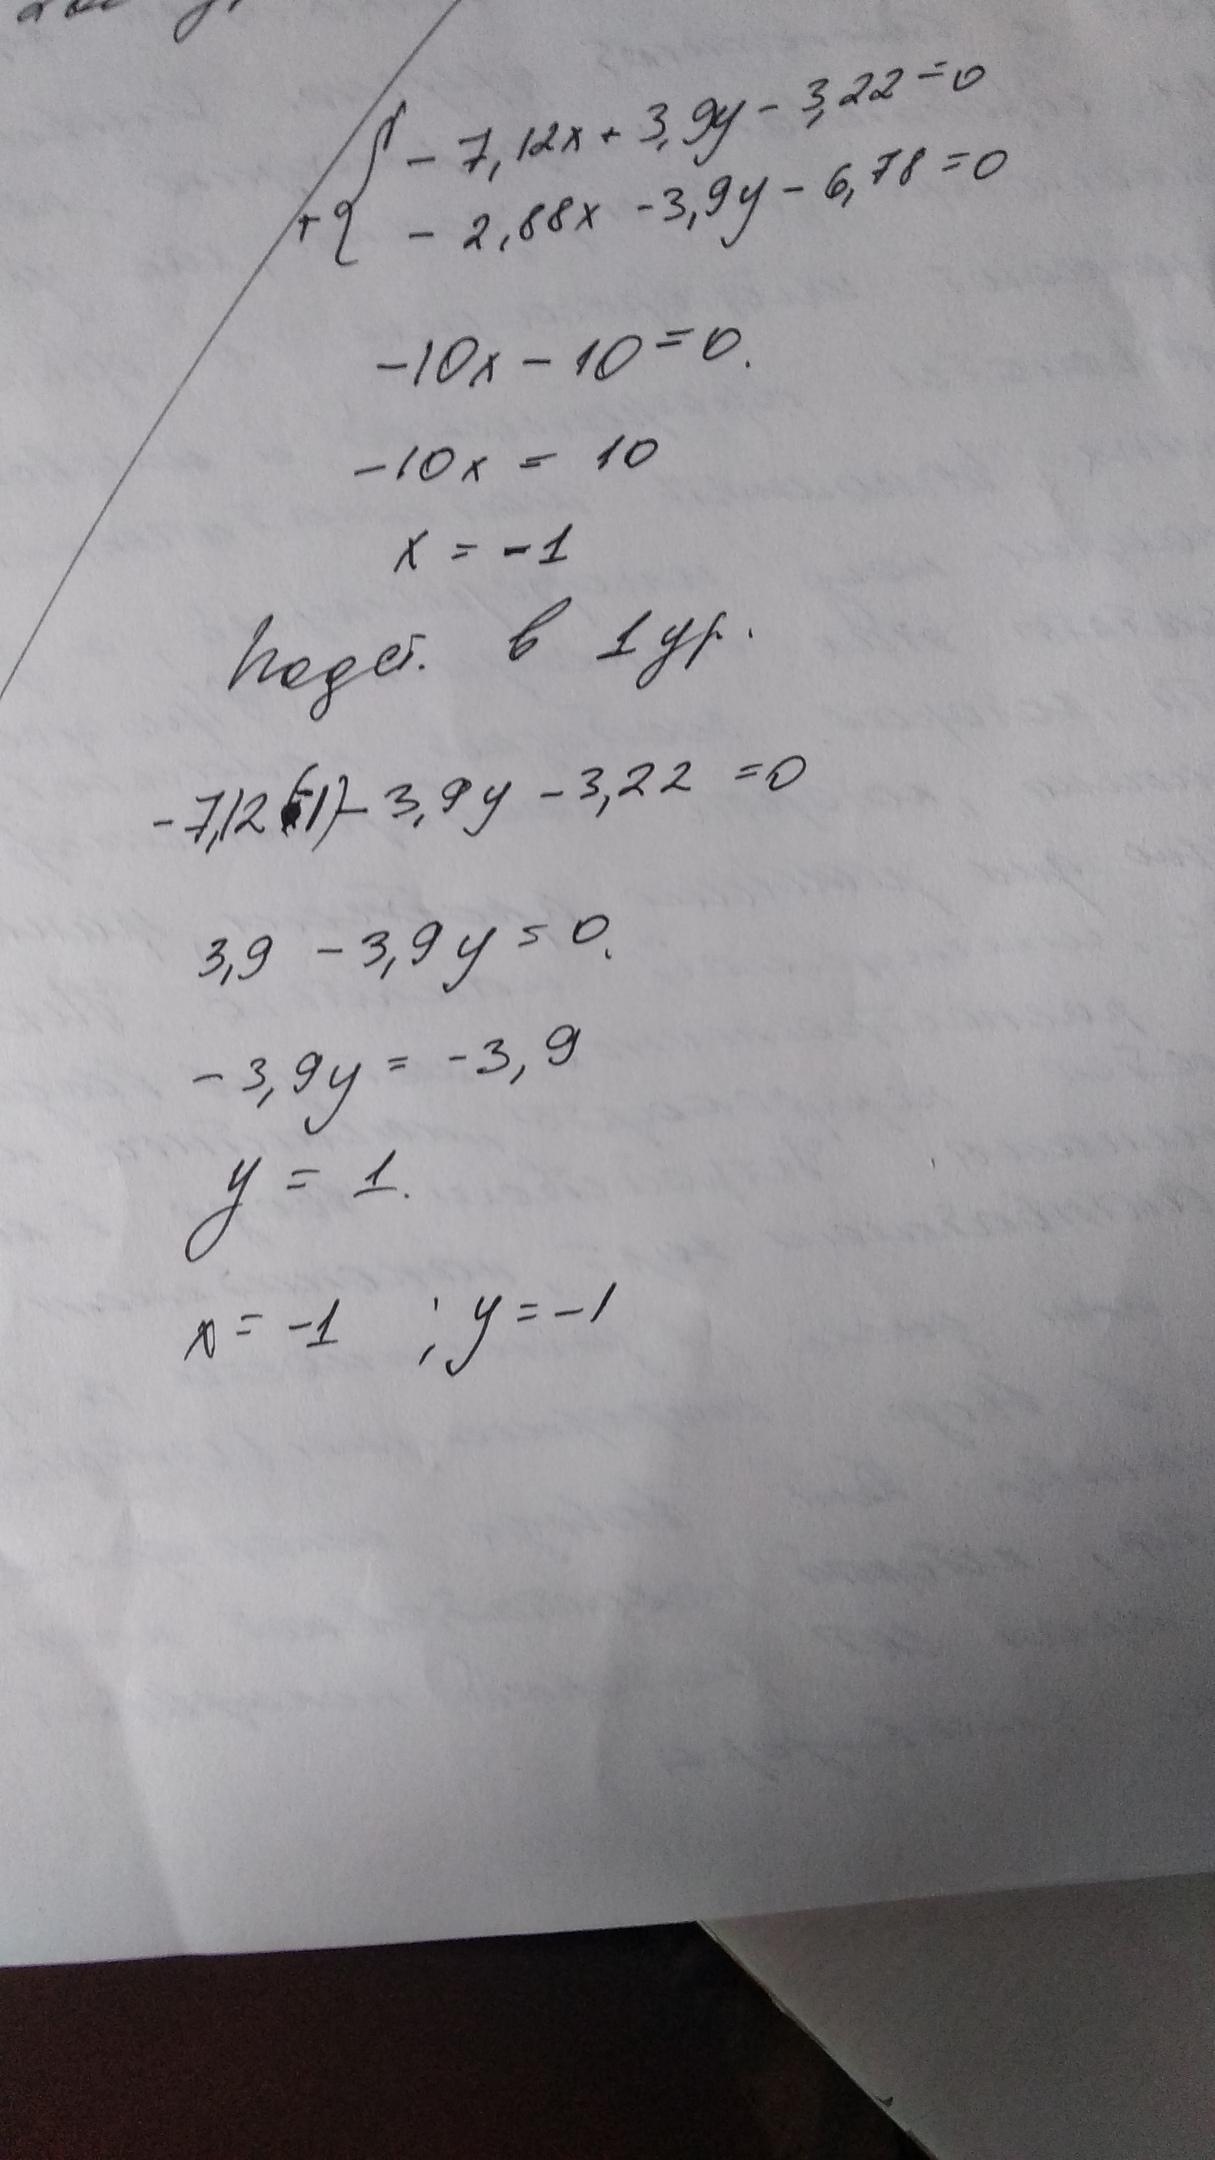 - 7,12x + 3,9y - 3,22 = 0
+{ - 2,88x - 3,9y - 6,78 = 0
-10x - 10 = 0.
-10x = 10
x = -1
Подст. в 1 ур.
-7,12(-1) - 3,9y - 3,22 = 0
3,9 - 3,9y = 0.
-3,9y = -3,9
y = 1.
x = -1 ; y = -1